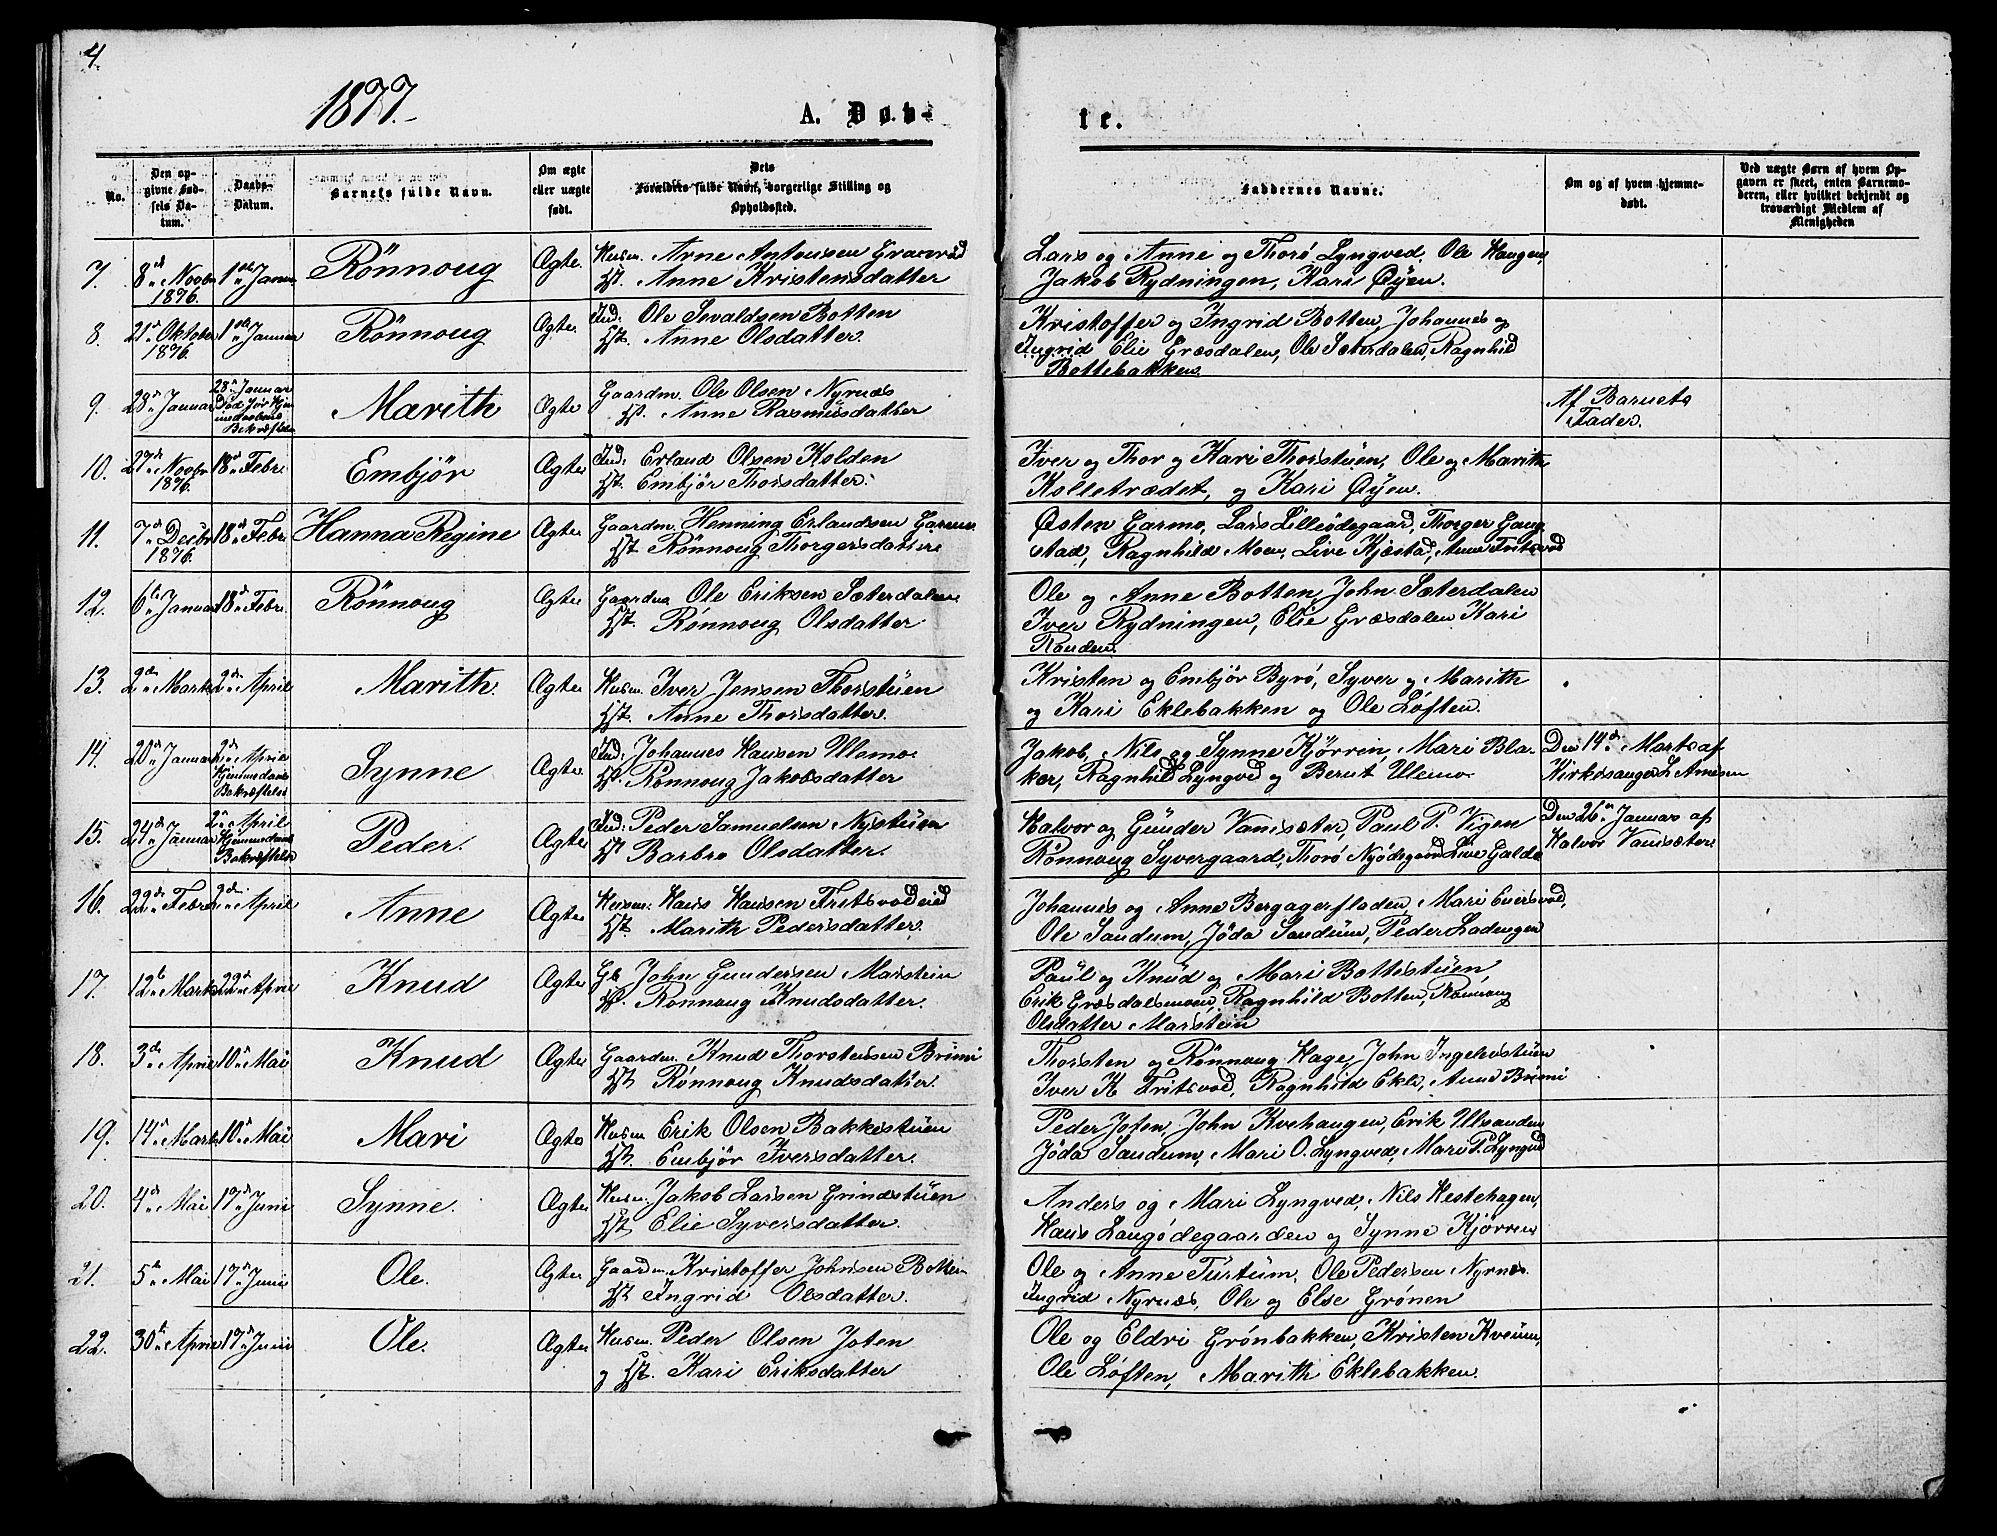 4.
1877.
A. Døb-
te.
No.
Den op-
givne Fød-
sels Da-
tum.
Daabs-
Datum.
Barnets fulde Navn.
Om ægte
eller uægte
født.
Dets
Forældres fulde Navn, borgerlige Stilling og
Opholdssted.
Faddernes Navne.
Om og af hvem hjemme-
døbt.
Ved uægte Børn af hvem Op-
gaven er skeet, enten Barnemo-
deren, eller hvilket bekjendt og
troværdigt Medlem af
Menigheden
7. 8de Novbr 1ste Januar Rönnoug Ægte Husm. Arne Antonsen Graverød Lars og Anne og Thorø Lyngved, Ole Haugen,
1876. Hst. Anne Kristensdatter Jakob Rydningen, Kari Øyen.
8. 21de Oktober 1ste Januar Rönnoug Ægte Ind: Ole Sevaldsen Botten Kristoffer og Ingrid Botten, Johannes og
1876. Hst. Anne Olsdatter. Ingrid Elie Græsdalen, Ole Sæterdalen, Ragnhild
Bottebakken.
9. 28de Januar 28de Januar Marith Ægte Gaardm. Ole Olsen Nyrnæs Af Barnets
Hst. Anne Rasmusdatter Fader.
Bekræftelse
10. 27de Novbr 18de Febr. Embjör Ægte Ind: Erland Olsen Kolden Iver og Thor og Kari Thorstuen, Ole og Marith
1876. Hst. Embjör Thorsdatter. Kolletrædet, og Kari Øyen.
11. 7de Decbr 18de Febr Hanna Regine Ægte Gaardm. Henning Erlandsen Garmo Østen Garmo, Lars Lilleødegaard, Thorger Gaug
1876. Hst. Rønnoug Thorgersdatter stad, Ragnhild Moen, Live Kjæstad, Anne Fritsvod
12. 6te Januar 18de Febr. Rönnoug Ægte Gaardm Ole Eriksen Sæterdalen Ole og Anne Botten, John Sæterdalen
Hst. Rønnoug Olsdatter Iver Rydningen, Elie Græsdalen Kari
Randen.
13. 2den Marts 2den April Marith. Ægte Husm. Iver Jensen Thorstuen Kristen og Embjör Byrø, Syver og Marith
Hst. Anne Thorsdatter. og Kari Eklebakken og Ole Løften.
14. 20de Januar 2den April Synne Ægte Ind: Johannes Hansen Ulemo. Jakob, Nils og Synne Kjörren, Mari Bla- Den 14de Marts af
Hjemmedaabs Hst. Rønnoug Jakobsdatter ker, Ragnhild Lyngved og Berit Ulemo Kirkesanger L. Arnesen
Bekræftelse
15. 24de Januar 2den April Peder. Ægte Ind: Peder Samuelsen Nystuen Halvor og Gunder Vansæter, Paul P. Vigen Den 26de Januar af
Hjemmedaabs Hst Barbro Olsdatter. Rønnoug Syvergaard, Thorø Nyødegaard Live Galde Halvor Vansæter
Bekræftelse
16. 22de Febr 2den April Anne Ægte Husm: Hans Hansen Fritsvodeid Johannes og Anne Bergagersladen, Mari Eversvod,
Hst. Marith Pedersdatter, Ole Sandum, Jøda Sandum, Peder Ladengen
17. 12te Marts 22de April Knud Ægte Gb. John Gundersen Marstein Paul og Knud og Mari Bottestuen,
Hst. Rønnoug Knudsdatter. Erik Græsdalsmoen, Ragnhild Botten, Rønnoug
Olsdatter Marstein
18. 3de April 10de Mai Knud Ægte Gaardm. Knud Thorstensen Brimi Thorsten og Rönnoug Hage, John Ingelvstuen
Hst Rønnoug Knudsdatter. Iver K Fritsvod, Ragnhild Ekle, Anne Brimi
19. 14de Marts 10de Mai Mari Ægte Husm Erik Olsen Bakkestuen Peder Joten, John Kvehaugen, Erik Ulsanden
Hst. Embjör Iversdatter. Jøda Sandum, Mari O. Lyngved, Mari P. Lyngved
20. 4de Mai 17de Juni Synne. Ægte Husm. Jakob Larsen Grindstuen Anders og Mari Lyngved, Nils Hestehagen,
Hst, Elie Syversdatter. Hans Langødegaarden og Synne Kjörren
21. 5te Mai 17de Juni Ole. Ægte Gaardm. Kristoffer Johnsen Botten Ole og Anne Turtum, Ole Pedersen Nyrnæs.
Hst Ingrid Olsdatter. Ingrid Nyrnæs, Ole og Else Grønen
22. 30te April 17de Juni Ole. Ægte Husm. Peder Olsen Joten Ole og Eldri Grønbakken, Kristen Kveum,
og Hst. Kari Eriksdatter Ole Løften, Marith Eklebakken.